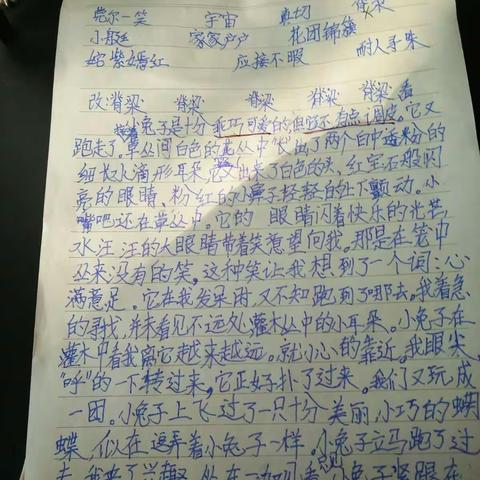 莞尔一笑 宇宙 真切 脊梁
小舰艇 家家户户 花团锦簇
姹紫嫣红 应接不暇 耐人寻味
改:脊梁 脊梁 脊梁 脊梁 脊梁
小兔子是十分乖巧可爱的,但它还有点调皮。它又
跑走了。草丛间白色的花丛中"长"出了两个白中透粉的
细长水滴形耳朵,又出来了白色的头、红宝石般闪
亮的眼睛、粉红的小鼻子轻轻的上下颤动。小
嘴吧还在草丛中。它的眼睛闪着快乐的光芒,
水汪汪的大眼睛带着笑意望向我。那是在笼中
丛来没有的笑。这种笑让我想到了一个词:心
满意足。它在我发呆时,又不知跑到了哪去。我着急
的寻找,并未看见不远处灌木丛中的小耳朵。小兔子在
灌木中看我离它越来越远。就小心的靠近。我眼尖,
"呼"的一下转过来,它正好扑了过来。我们又玩成
一团。小兔子上飞过了一只十分美丽,小巧的蝴
蝶,似在逗弄着小兔子一样。小兔子立马跑了过
去,我来了兴趣,处在一边看,小兔子紧跟在